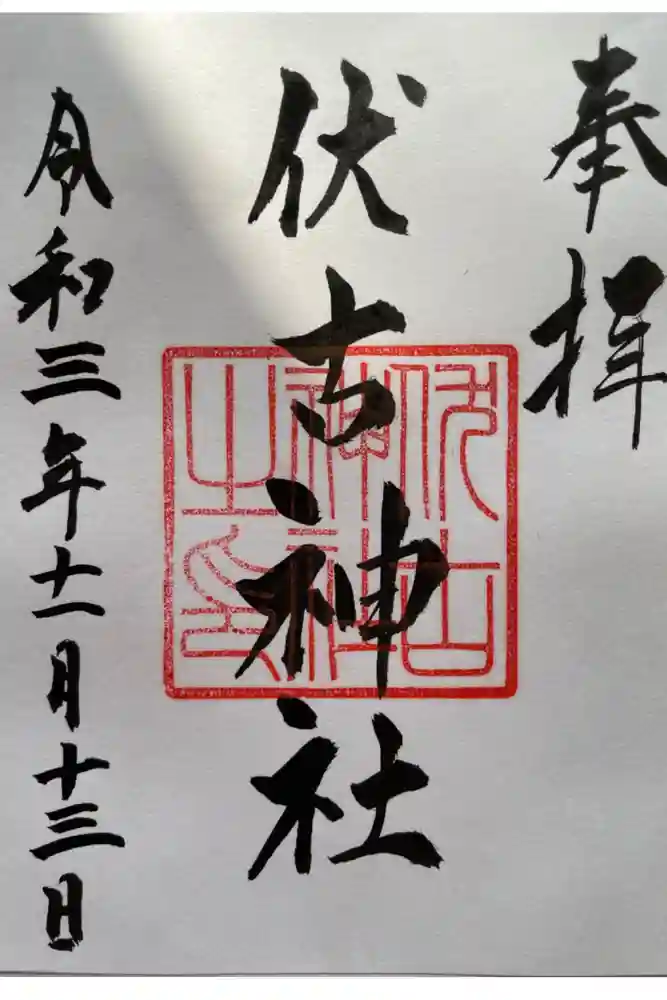 奉拝
伏古神社
伏古神社之印
令和三年十一月十三日